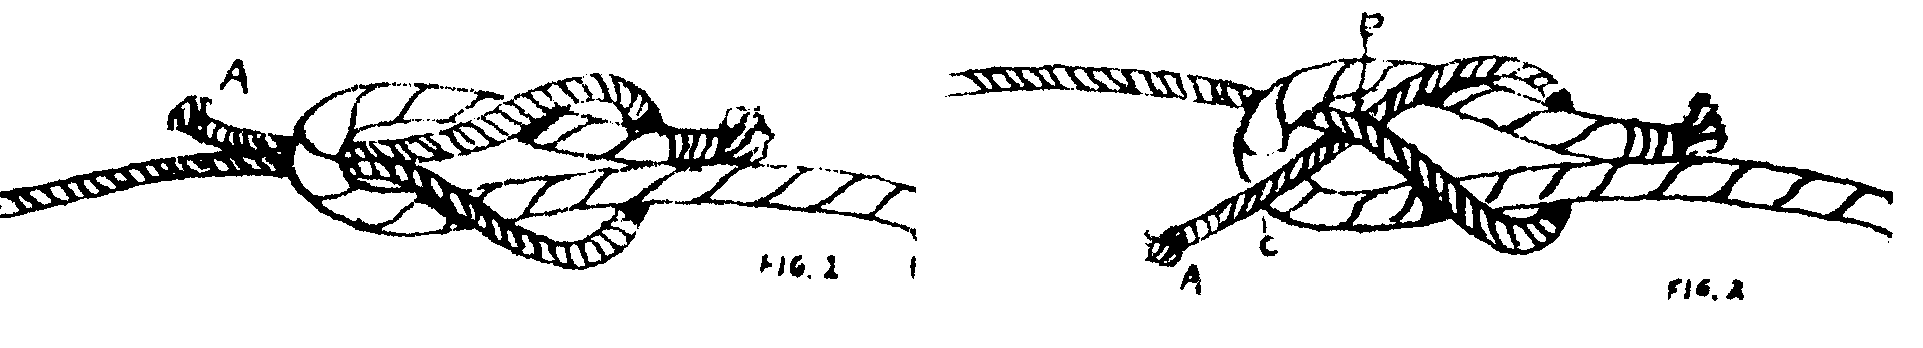 A
FIG. 2
P
C
A
FIG. 2